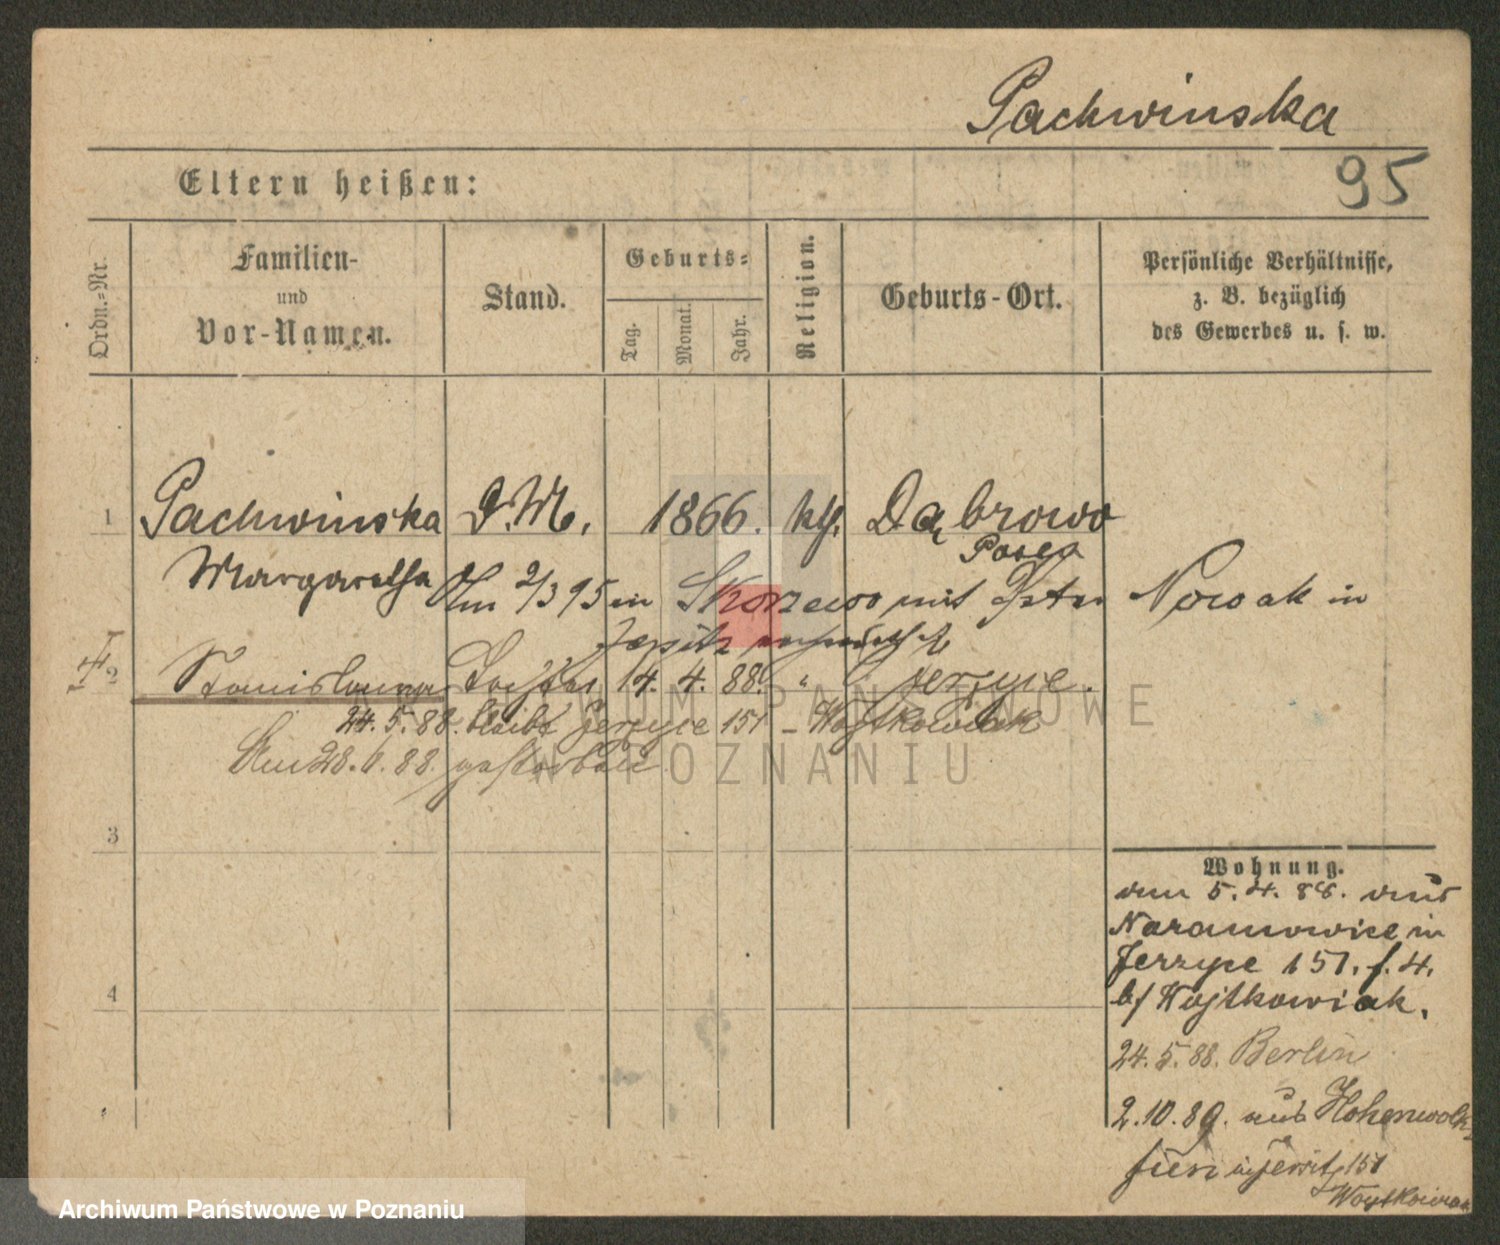 Pachwinska
95
Eltern heißen:
Ordn.-Nr.
Familien-
und
Vor-Namen.
Stand.
Geburts-
Tag.
Monat.
Jahr.
Religion.
Geburts-Ort.
Persönliche Verhältnisse,
z. B. bezüglich
des Gewerbes u. s. w.
1 Pachwinska D.M. 1866. kth. Dąbrowo
Posen
Margaretha
Am 2/3 95 in Skorzewo mit Peter Nowak in
Jersitz
2 Stanislawa Tochter 14. 4. 88. " Jerzyce.
24. 5. 88. bleibt Jerzyce 151 - Wojtkowiak
Am 28. 6. 88. gestorben
3
4
Wohnung.
am 5. 4. 88. aus
Naramowice in
Jerzyce 151. f. 4.
b/ Wojtkowiak.
24. 5. 88. Berlin
2. 10. 89. aus Hohenwalk
in Jersitz 151
Woytkowiak
ARCHIWUM PAŃSTWOWE
W POZNANIU
Archiwum Państwowe w Poznaniu